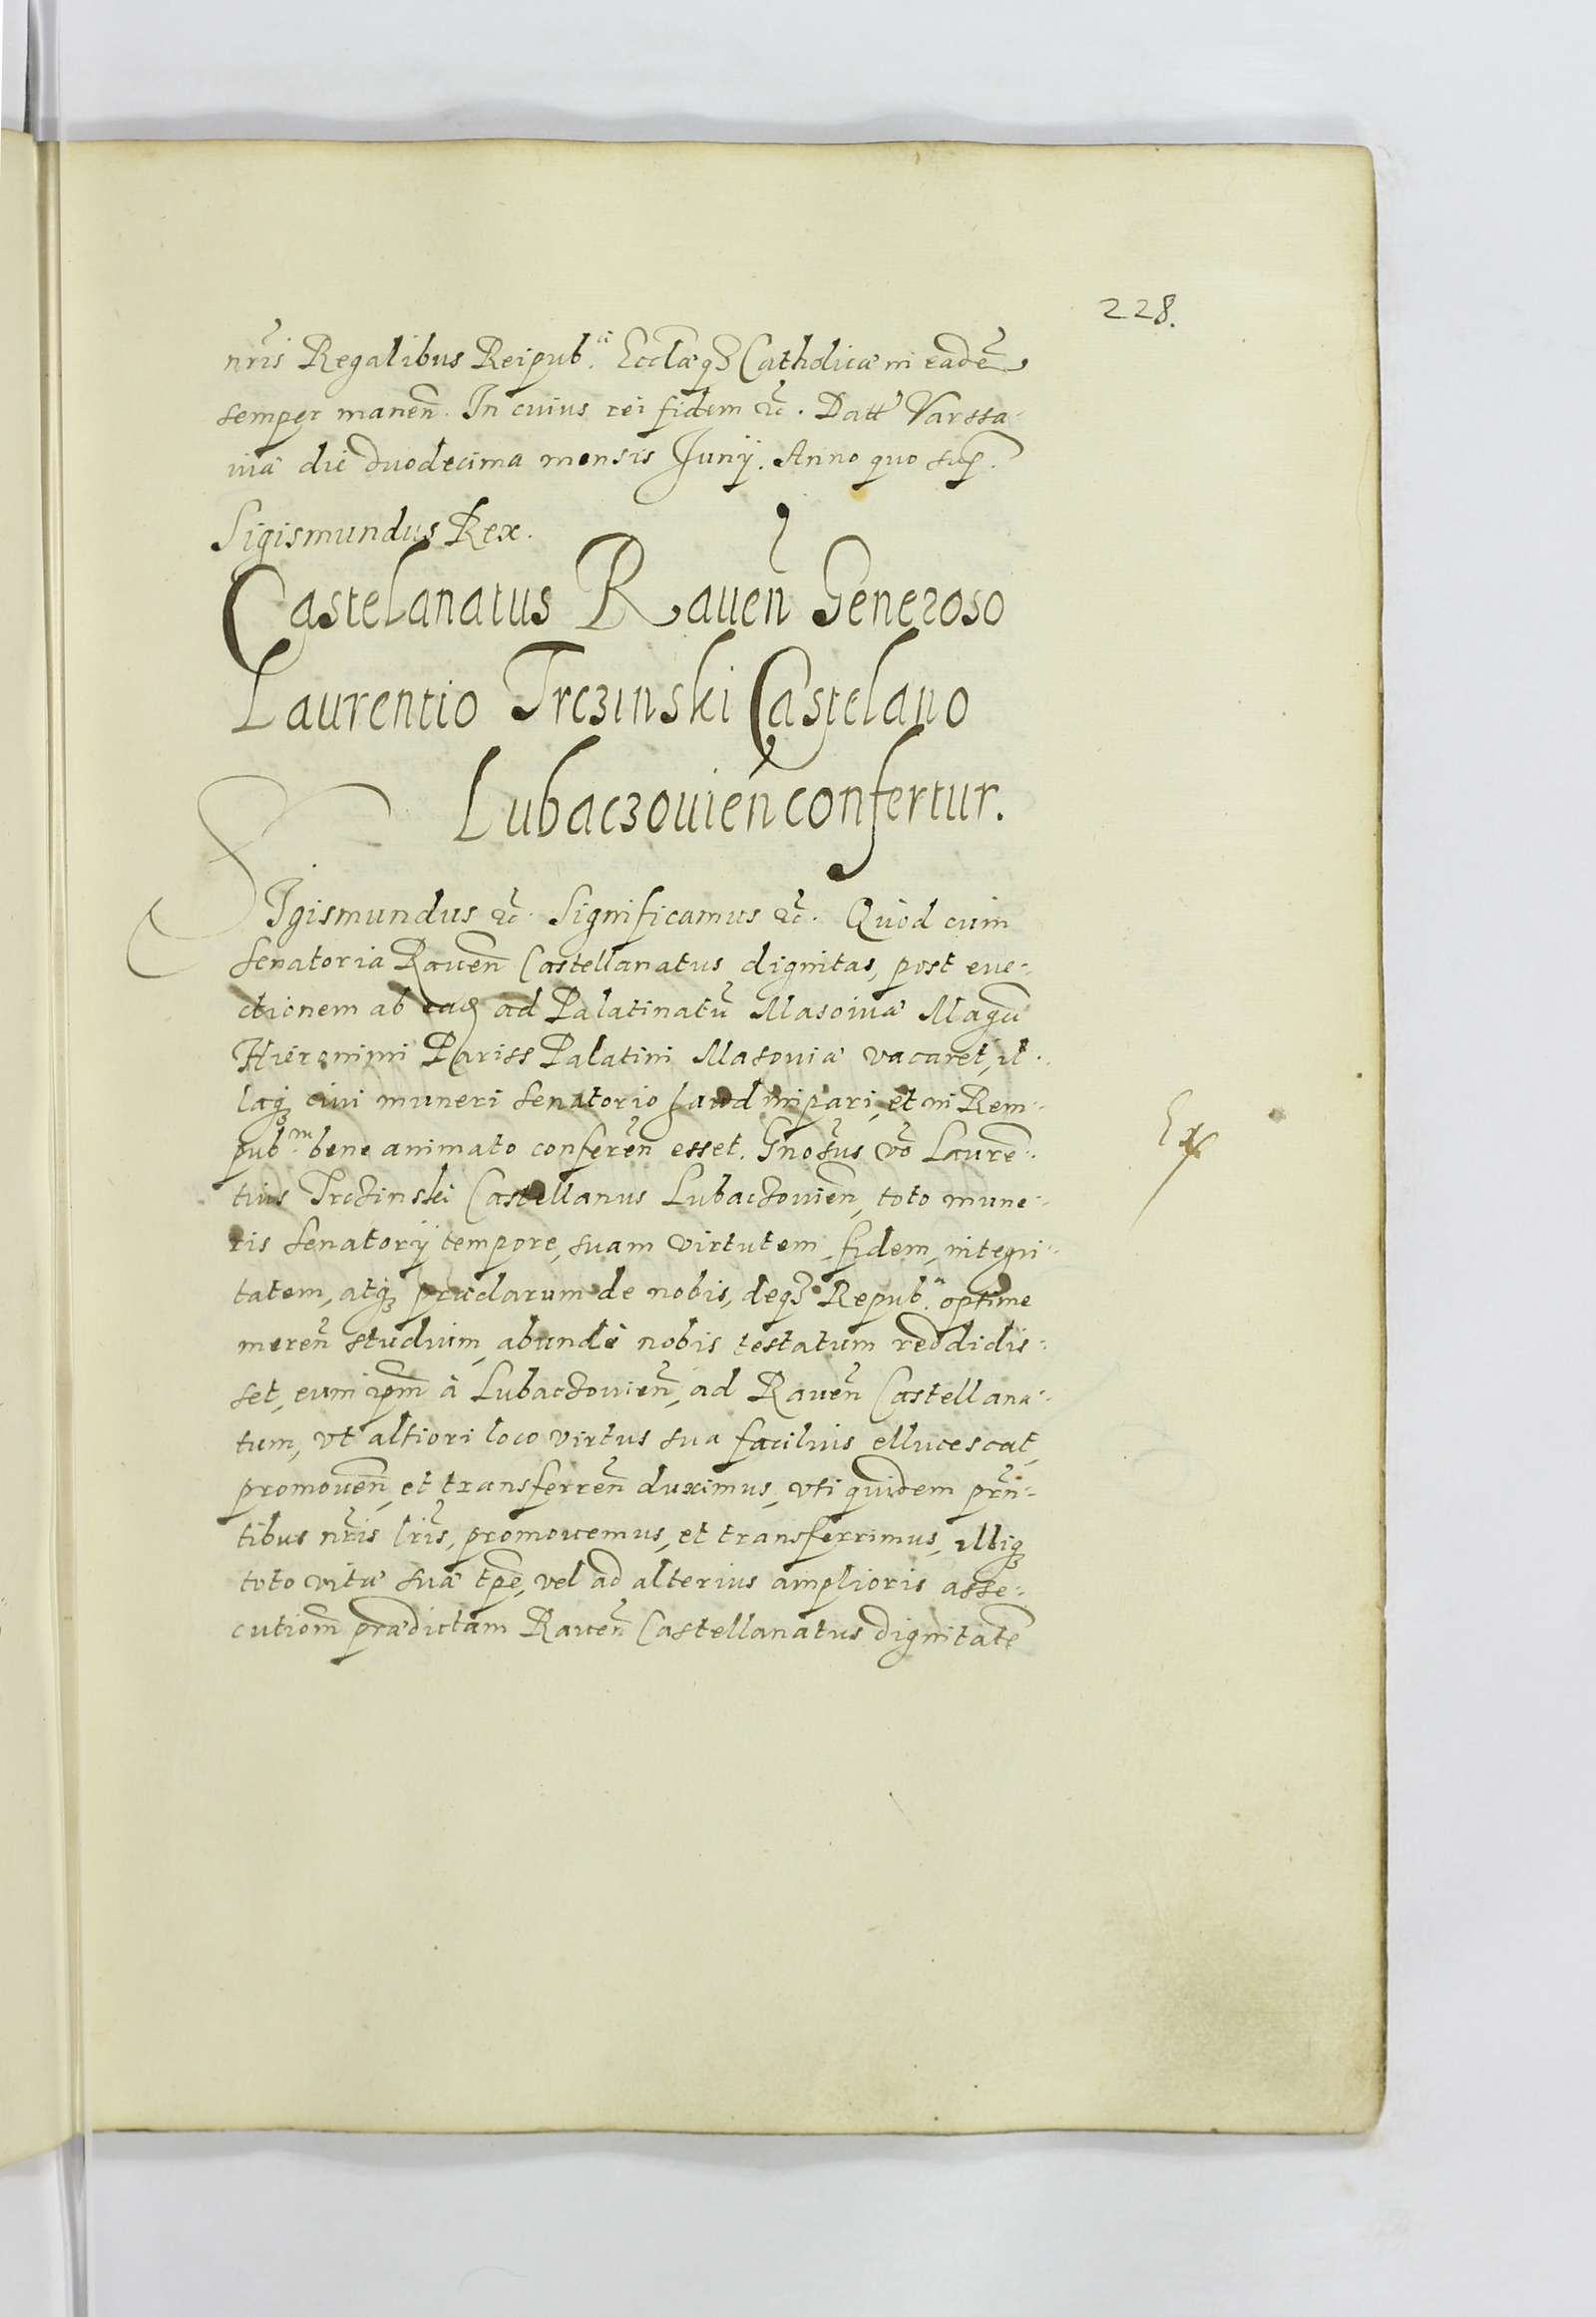 228.
nr̃is Regalibus Reipub.ᶜᵃᵉ Ecclæq3 Catholicæ in eadẽ
semper maneñ. In cuius rei fidem &c̃. Datt Varssa-
uiæ die duodecima mensis Junÿ. Anno quo sup̃.
Sigismundus Rex.
Castelanatus Raueñ Generoso
Laurentio Trczinski Castelano
Lubaczouieñ confertur.
SIgismundus &c̃. Significamus &c̃. Quod cum
senatoria Raueñ Castellanatus dignitas, post eue-
ctionem ab ad Palatinatũ Masouiæ Magci
Hieronimi Pariss Palatini Masouiæ vacaret, il-
laq3 ciui muneri senatorio haud impari, et in Rem-
pub.ᵐ bene animato confereñ esset. Gnosus vo Laurẽ-
tius Trczinski Castellanus Lubaczouieñ, toto mune-
ris senatorÿ tempore, suam virtutem, fidem, integri-
tatem, atq3 præclarum de nobis, deq3 Repub.ᵃ optime
mereñ studium, abunde nobis testatum reddidis-
set, eum ipm̃ à Lubaczouieñ, ad Raueñ Castellana-
tum, vt altiori loco virtus sua facilius ellucescat,
promoueñ, et transferreñ duximus, vti quidem prñ-
tibus nr̃is lr̃is, promouemus, et transferrimus, illiq3
toto vitæ suæ tp̃e, vel ad alterius amplioris asse-
cutiom̃ prædictam Raueñ Castellanatus dignitatẽ